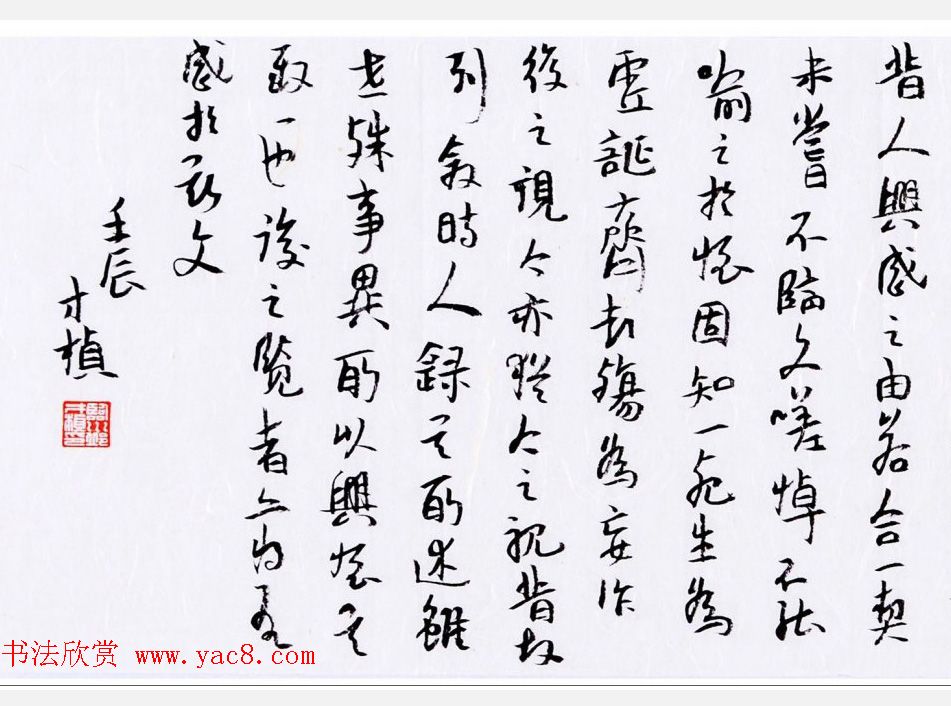 昔人興感之由若合一契
未嘗不臨文嗟悼不能
喻之於懷固知一死生為
虛誕齊彭殤為妄作
後之視今亦猶今之視昔故
列敘時人錄其所述雖
世殊事異所以興懷其
致一也後之覽者亦將有
感於斯文
壬辰
才楨
书法欣赏 www.yac8.com